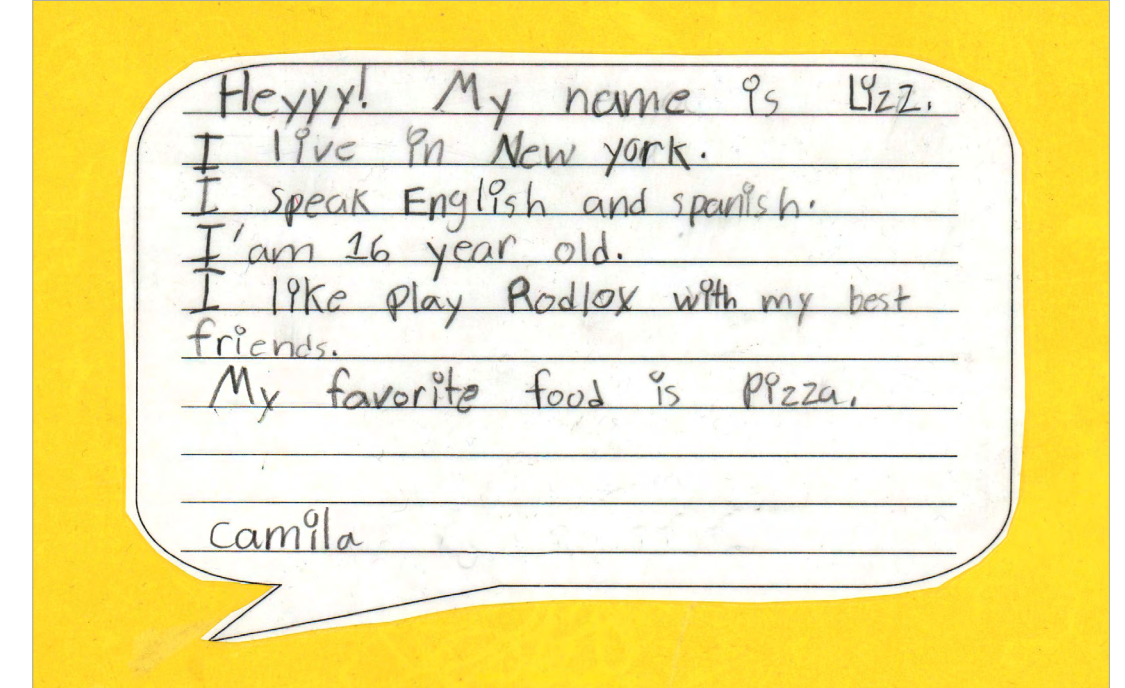 Heyyy! My name is Lizz.
I live in New york.
I speak English and spanish.
I'am 16 year old.
I like play Rodlox with my best
friends.
My favorite food is pizza.
camila